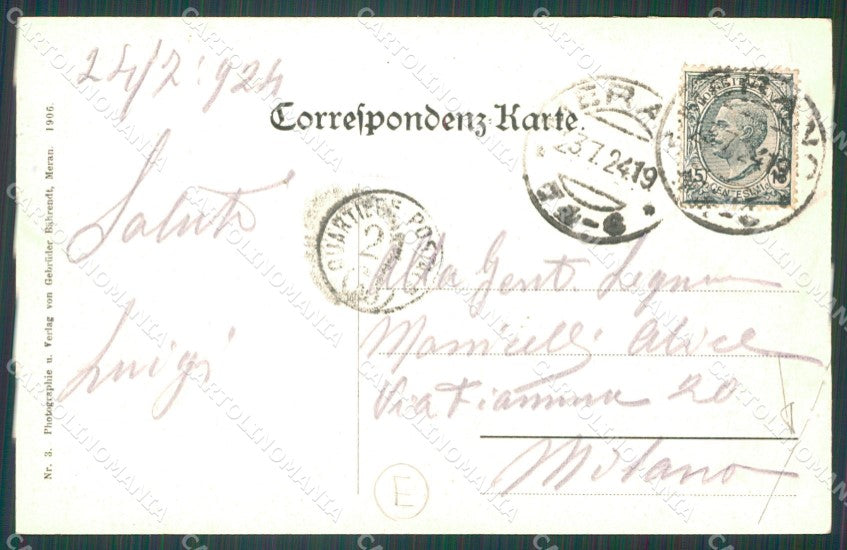 24/7 1924
Correspondenz-Karte
Saluti
Luigi
Alla Gent. Signora
Alice
Via Fiamma 20
Milano
Nr. 3. Photographie u. Verlag von Gebrüder Bährendt, Meran. 1906.
MERANO
23.7.24 19
QUARTIERE POSTALE
2
15 15
CENTESIMI
E
CARTOLINOMANIA